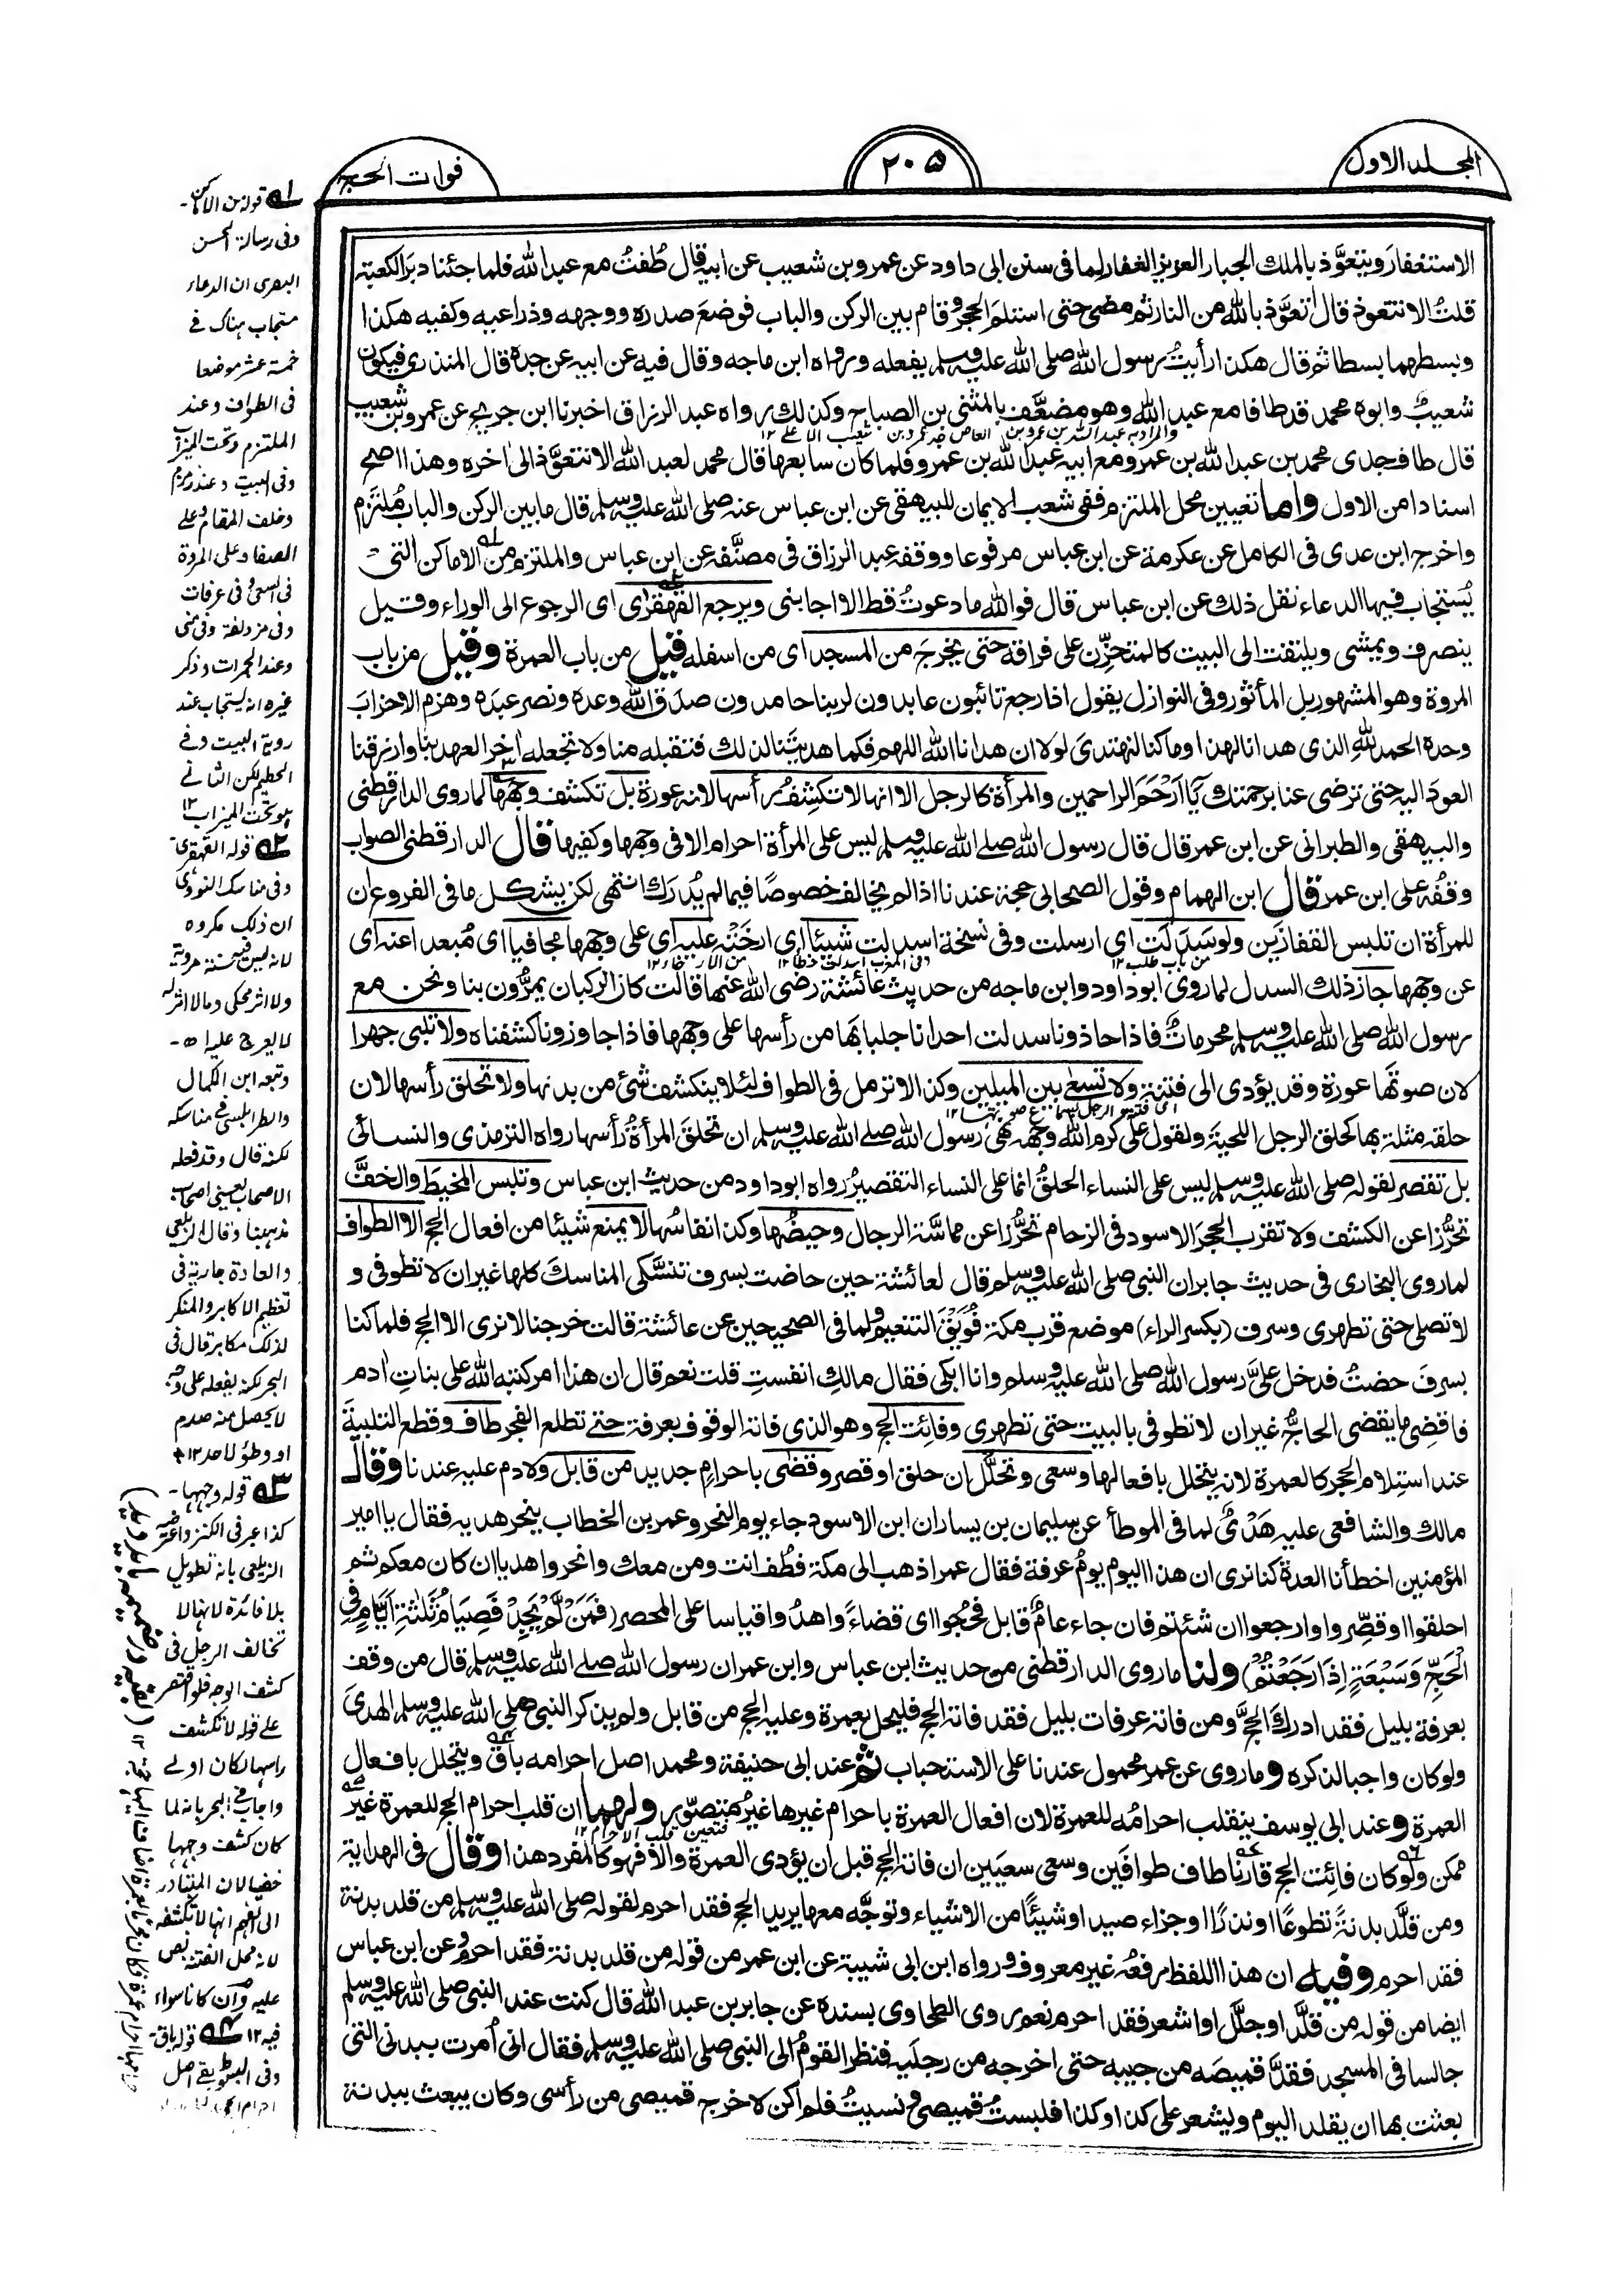 المجلد الاول
٢٠٥
فوات الحج
الاستغفار ويتعوَّذ بالملك الجبار العزيز الغفار لما فى سنن ابى داود عن عمرو بن شعيب عن ابيه قال طُفتُ مع عبد الله فلما جئنا دبرَ الكعبة
قلتُ الا نتعوذ قال نعوَّذ بالله من النار ثم مضى حتى استلم الحجر وقام بين الركن والباب فوضعَ صدره ووجهه وذراعيه وكفيه هكذا
وبسطهما بسطا ثم قال هكذا رأيتُ رسول الله صلى الله عليه وسلم يفعله ورواه ابن ماجه وقال فيه عن ابيه عن جده قال المنذرى فيكون
شعيبٌ وابوه محمد قد طافا مع عبد الله وهو مضعَّف بالمثنى بن الصباح وكذلك رواه عبد الرزاق اخبرنا ابن جريج عن عمرو بن شعيب
قال طاف جدى محمد بن عبد الله بن عمرو مع ابيه عبد الله بن عمرو فلما كان سابعها قال محمد لعبد الله الا نتعوَّذ الى اخره وهذا اصح
اسنادا من الاول واما تعيين محل الملتزم ففى شعب الايمان للبيهقى عن ابن عباس عنه صلى الله عليه وسلم قال ما بين الركن والباب مُلتزم
واخرج ابن عدى فى الكامل عن عكرمة عن ابن عباس مرفوعا ووقفه عبد الرزاق فى مصنَّفه عن ابن عباس والملتزم من الاماكن التى
يُستجاب فيها الدعاء نقل ذلك عن ابن عباس قال فوالله ما دعوتُ قط الا اجابنى ويرجع القهقرى اى الرجوع الى الوراء وقيل
ينصرف ويمشى ويلتفت الى البيت كالمتحزِّن على فراقه حتى يخرج من المسجد اى من اسفله قيل من باب العمرة وقيل من باب
المروة وهو المشهور بل المأثور وفى النوازل يقول اذا رجع تائبون عابدون لربنا حامدون صدق الله وعده ونصر عبده وهزم الاحزاب
وحده الحمد لله الذى هدانا لهذا وما كنا لنهتدى لولا ان هدانا الله اللهم فكما هديتنا لذلك فتقبله منا ولا تجعله اخر العهد بنا وارزقنا
العودَ اليه حتى ترضى عنا برحمتك يا ارحم الراحمين والمرأة كالرجل الا انها لا تكشفُ رأسها لانه عورة بل تكشف وجهها لما روى الدارقطنى
والبيهقى والطبرانى عن ابن عمر قال قال رسول الله صلى الله عليه وسلم ليس على المرأة احرام الا فى وجهها وكفيها قال الدارقطنى الصواب
وقفُه على ابن عمر قال ابن الهمام وقول الصحابى حجة عندنا اذا لم يخالف خصوصًا فيما لم يُدرَك انتهى لكن يشكل ما فى الفروع ان
للمرأة ان تلبس القفازَين ولو سَدَلَت اى ارسلت وفى نسخة اسدلت شيئا اى ارخَته عليه اى على وجهها مجافيا اى مُبعدا عنه اى
عن وجهها جاز ذلك السدل لما روى ابو داود وابن ماجه من حديث عائشة رضى الله عنها قالت كان الركبان يمرُّون بنا ونحن مع
رسول الله صلى الله عليه وسلم محرماتٌ فاذا حاذونا سدلت احدانا جلبابَها من رأسها على وجهها فاذا جاوزونا كشفناه ولا تلبى جهرا
لان صوتَها عورة وقد يؤدى الى فتنة ولا تسعى بين الميلين وكذا لا ترمل فى الطواف لئلا ينكشف شئ من بدنها ولا تحلق رأسها لان
حلقه مثلة بها كحلق الرجل اللحية ولقول علىّ كرم الله وجهه نهى رسول الله صلى الله عليه وسلم ان تحلقَ المرأةُ رأسها رواه الترمذى والنسائى
بل تقصر لقوله صلى الله عليه وسلم ليس على النساء الحلقُ انما على النساء التقصيرُ رواه ابو داود من حديث ابن عباس وتلبس المخيط والخفَّ
تحرُّزا عن الكشف ولا تقرب الحجرَ الاسود فى الزحام تحرُّزا عن مماسَّة الرجال وحيضُها وكذا نفاسُها لا يمنع شيئا من افعال الحج الا الطواف
لما روى البخارى فى حديث جابر ان النبى صلى الله عليه وسلم قال لعائشة حين حاضت بسرف تنسَّكى المناسك كلها غير ان لا تطوفى و
لا تصلى حتى تطهرى وسرف (بكسر الراء) موضع قرب مكة فُوَيقَ التنعيم ولما فى الصحيحين عن عائشة قالت خرجنا لا نرى الا الحج فلما كنا
بسرفَ حضتُ فدخل علىَّ رسول الله صلى الله عليه وسلم وانا ابكى فقال مالكِ انفستِ قلت نعم قال ان هذا امر كتبه الله على بناتِ ادم
فاقضِى ما يقضى الحاجّ غير ان لا تطوفى بالبيت حتى تطهرى وفائت الحج وهو الذى فاته الوقوف بعرفة حتى تطلع الفجر طاف وقطع التلبية
عند استلام الحجر كالعمرة لانه يتحلل بافعالها وسعى وتحلَّل ان حلق او قصر وقضى باحرام جديد من قابل ولا دم عليه عندنا وقال
مالك والشافعى عليه هَدْىٌ لما فى الموطأ عن سليمان بن يسار ان ابن الاسود جاء يوم النحر وعمر بن الخطاب ينحر هديه فقال يا امير
المؤمنين اخطأنا العدة كنا نرى ان هذا اليوم يومُ عرفة فقال عمر اذهب الى مكة فطُف انت ومن معك وانحروا هديا ان كان معكم ثم
احلقوا او قصِّروا وارجعوا ان شئتم فان جاء عامٌ قابل فحُجوا اى قضاءً واهدُوا قياسا على المحصر (فَمَنْ لَّمْ يَجِدْ فَصِيَامُ ثَلٰثَةِ اَيَّامٍ فِى
الْحَجِّ وَسَبْعَةٍ اِذَا رَجَعْتُمْ) ولنا ما روى الدارقطنى من حديث ابن عباس وابن عمر ان رسول الله صلى الله عليه وسلم قال من وقف
بعرفة بليل فقد ادرك الحجَّ ومن فاته عرفات بليل فقد فاته الحج فليحل بعمرة وعليه الحج من قابل ولم يذكر النبى صلى الله عليه وسلم الهدىَ
ولو كان واجبا لذكره وما روى عن عمر محمول عندنا على الاستحباب ثم عند ابى حنيفة ومحمد اصل احرامه باق ويتحلل بافعال
العمرة وعند ابى يوسف ينقلب احرامُه للعمرة لان افعال العمرة باحرام غيرها غيرُ متصوّر ولهما ان قلب احرام الحج للعمرة غير
ممكن ولو كان فائت الحج قارنًا طاف طوافَين وسعى سعيَين ان فاته الحج قبل ان يؤدى العمرة والا فهو كالمفرد هذا وقال فى الهداية
ومن قلَّد بدنةً تطوعًا او نذرًا او جزاء صيد او شيئًا من الاشياء وتوجَّه معها يريد الحج فقد احرم لقوله صلى الله عليه وسلم من قلد بدنة
فقد احرم وفيه ان هذا اللفظ رفعُه غير معروف ورواه ابن ابى شيبة عن ابن عمر من قوله من قلد بدنة فقد احرم وعن ابن عباس
ايضا من قوله من قلَّد او جلَّل او اشعر فقد احرم نعم روى الطحاوى بسنده عن جابر بن عبد الله قال كنت عند النبى صلى الله عليه وسلم
جالسا فى المسجد فقدَّ قميصَه من جيبه حتى اخرجه من رجلَيه فنظر القومُ الى النبى صلى الله عليه وسلم فقال انى اُمرت ببدنى التى
بعثت بها ان يقلد اليوم ويشعر على كذا وكذا فلبستُ قميصى ونسيتُ فلم اكن لاخرج قميصى من رأسى وكان يبعث ببدنة
١ قوله من الاماكن-
وفى رسالة الحسن
البصرى ان الدعاء
مستجاب هناك فى
خمسة عشر موضعا
فى الطواف وعند
الملتزم وتحت الميزاب
وفى البيت وعند زمزم
وخلف المقام وعلى
الصفا وعلى المروة
فى السعى وفى عرفات
وفى مزدلفة وفى منى
وعند الجمرات وذكر
غيره انه يستجاب عند
روية البيت وفى
الحطيم لكن الثانى
هو تحت الميزاب ١٢
٢ قوله القهقرى
وفى مناسك النووى
ان ذلك مكروه
لانه ليس فيه سنة مروية
ولا اثر محكى وما لا اثر له
لا يعرج عليه اه-
وتبعه ابن الكمال
والطرابلسى فى مناسكه
لكنه قال وقد فعله
الاصحاب يعنى اصحاب
مذهبنا وقال الزيلعى
والعادة جارية فى
تعظيم الاكابر والمنكر
لذلك مكابر قال فى
البحر لكنه يفعله على وجه
لا يحصل منه صدم
او وطؤ لاحد ١٢
٣ قوله وجهها-
كذا عبر فى الكنز واعترضه
الزيلعى بانه تطويل
بلا فائدة لانها لا
تخالف الرجل فى
كشف الوجه فلو اقتصر
على قوله لا تكشف
راسها لكان اولى
واجاب فى البحر بانه لما
كان كشف وجهها
خفيا لان المتبادر
الى الفهم انها لا تكشفه
لانه محل الفتنة نص
عليه وان كانا سواء
فيه ١٢ ٤ قوله باق-